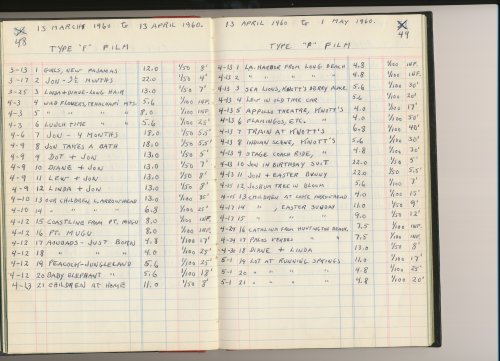 48
13 MARCH 1960 to 13 APRIL 1960.
TYPE "F" FILM
3-13 1 GIRLS, NEW PAJAMAS 12.0 1/50 8'
3-17 2 JON - 3½ MONTHS 22.0 1/50 4'
3-18 3 LINDA + DIANE - LONG HAIR 13.0 1/50 7'
4-3 4 WILD FLOWERS, TEHACHAPI MTS. 5.6 1/100 INF.
4-3 5 " " " 8.0 1/100 INF.
4-3 6 LUNCH TIME " " 5.6 1/100 25'
4-6 7 JON - 4 MONTHS 18.0 1/50 5.5'
4-9 8 JON TAKES A BATH 18.0 1/50 5.5'
4-9 9 DOT + JON 13.0 1/50 7'
4-9 10 DIANE + JON 13.0 1/50 7'
4-9 11 LEW + JON 13.0 1/50 8'
4-9 12 LINDA + JON 13.0 1/50 8'
4-10 13 OUR CHILDREN L. ARROWHEAD 13.0 1/100 35'
4-10 14 " " " " 6.8 1/100 25'
4-12 15 COASTLINE FROM PT. MUGU 7.5 1/100 INF.
4-12 16 PT. MUGU 8.0 1/100 INF.
4-12 17 AOUDADS - JUST BORN 4.8 1/100 17'
4-12 18 " " " 4.0 1/100 25'
4-12 19 PEACOCK - JUNGLELAND 5.6 1/100 25'
4-12 20 BABY ELEPHANT " 5.6 1/100 18'
4-13 21 CHILDREN AT HOME 11.0 1/50 8'
49
13 APRIL 1960 to 1 MAY 1960.
TYPE "F" FILM
4-13 1 LA. HARBOR FROM LONG BEACH 4.8 1/100 INF.
4-13 2 " " " " " 4.8 1/100 INF.
4-13 3 SEA LIONS, KNOTT'S BERRY PLACE 5.6 1/100 30'
4-13 4 LEW IN OLD TIME CAR 5.6 1/100 20'
4-13 5 APPOLLO THEATRE, KNOTT'S 4.0 1/100 17'
4-13 6 FLAMINGOS, ETC. " 4.0 1/100 30'
4-13 7 TRAIN AT KNOTT'S 6.8 1/100 40'
4-13 8 INDIAN SCENE, KNOTT'S 5.6 1/100 30'
4-13 9 STAGE COACH RIDE, " 4.8 1/100 30'
4-13 10 JON IN BIRTHDAY SUIT 22.0 1/50 5'
4-13 11 JON + EASTER BUNNY 22.0 1/50 5.5'
4-15 12 JOSHUA TREE IN BLOOM 5.6 1/100 7'
4-17 13 CHILDREN AT LAKE ARROWHEAD 4.0 1/100 15'
4-17 14 " " , EASTER SUNDAY 11.0 1/50 9'
4-17 15 " " " 9.0 1/50 12'
4-24 16 CATALINA FROM HUNTINGTON BEACH 7.5 1/100 INF.
4-24 17 PALOS VERDES " " 7.5 1/100 INF.
4-30 18 DIANE + LINDA 13.0 1/50 8'
5-1 19 LOT AT RUNNING SPRINGS 11.0 1/100 17'
5-1 20 " " " " 4.8 1/100 25'
5-1 21 " " " " 4.8 1/100 20'